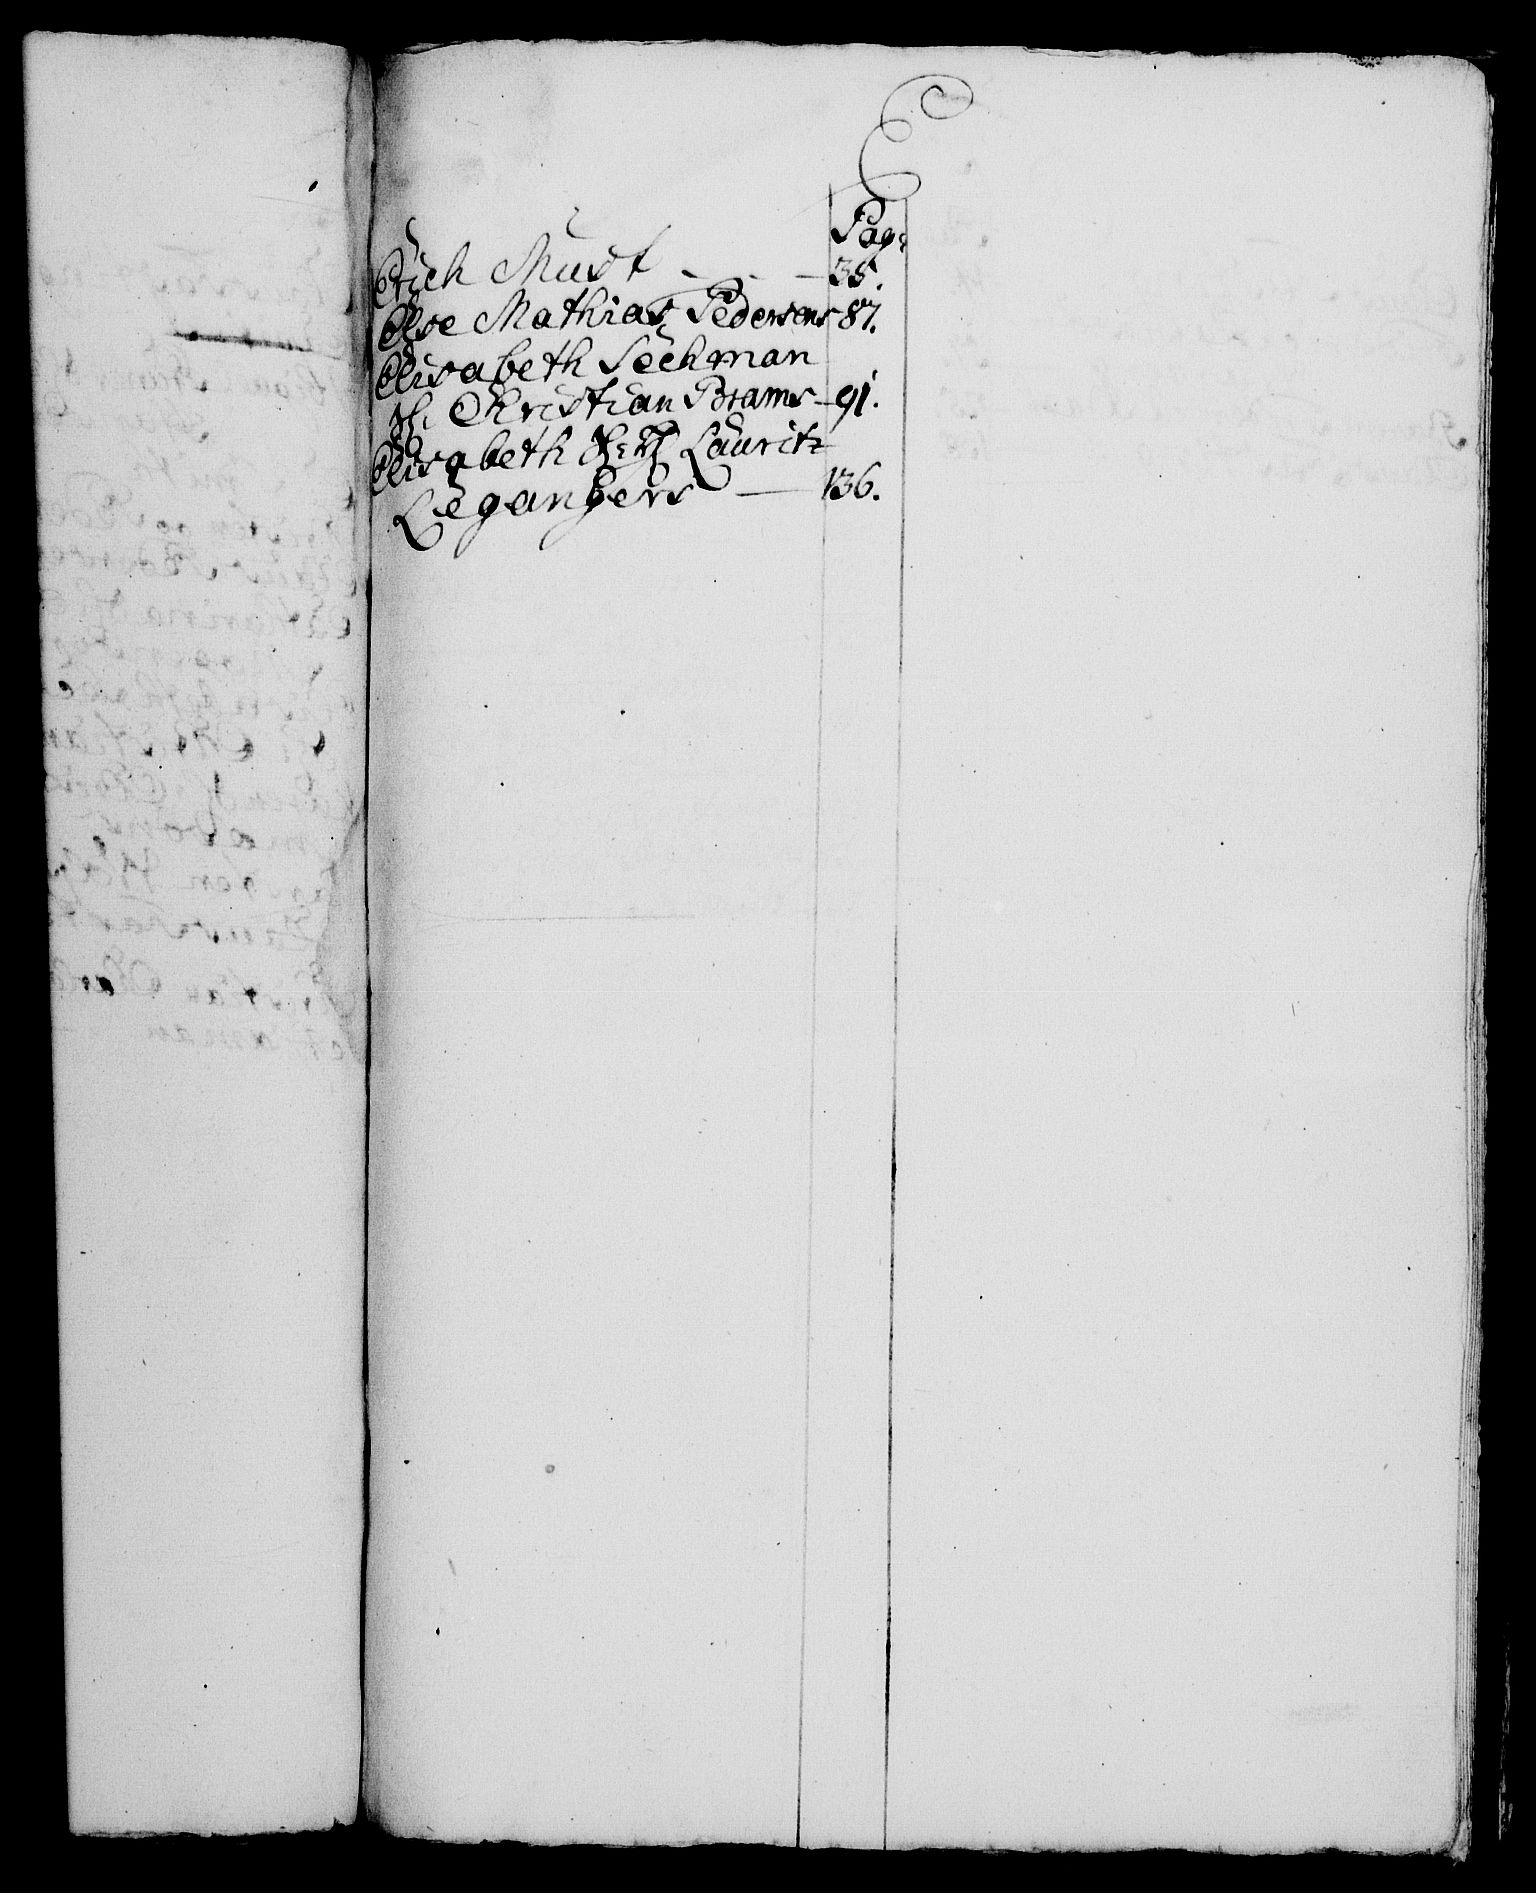 E
Pag:
Erich Must - - - 35.
Else Mathias Pedersens 87.
Elisabeth Sechman
Sl. Christian Brams - 91.
Elisabeth Lauritz
Legangers - 136.